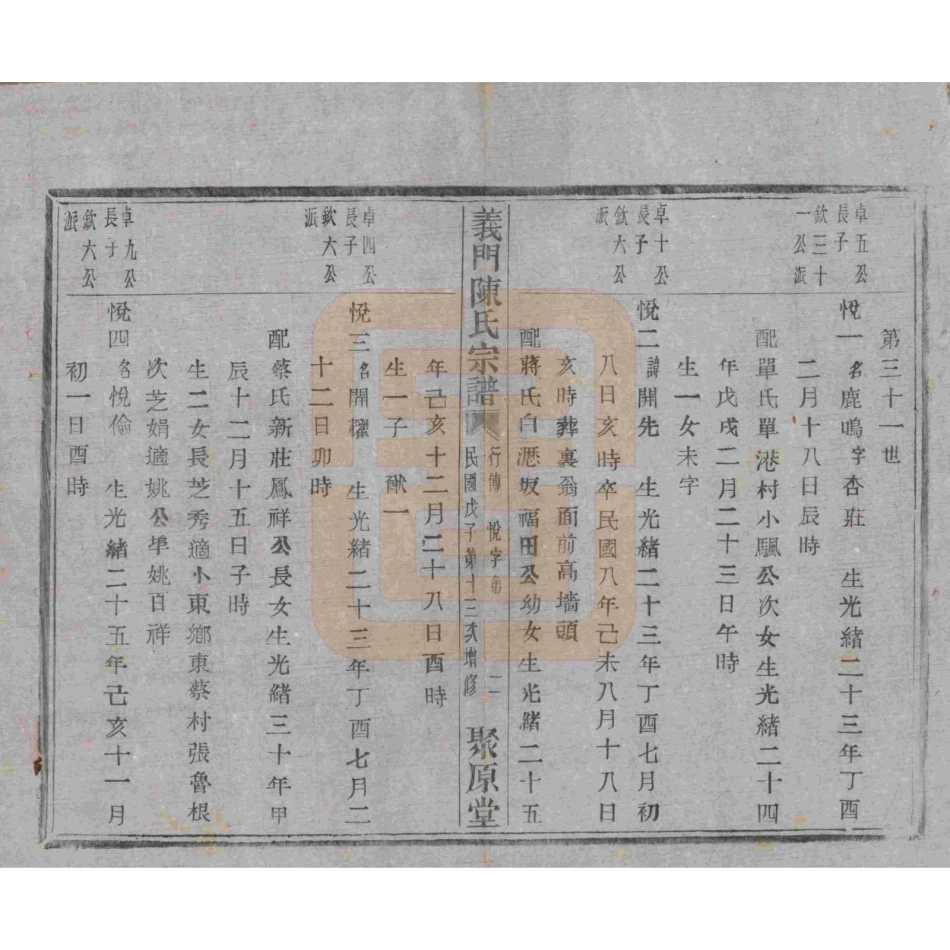 第三十一世
卓五公
長子
欽三十
一公派
悅一名鹿鳴字杏莊 生光緒二十三年丁酉
二月十八日辰時
配單氏單港村小颿公次女生光緒二十四
年戊戌二月二十三日午時
生一女未字
卓十公
長子
欽六公
派
悅二諱開先 生光緒二十三年丁酉七月初
八日亥時卒民國八年己未八月十八日
亥時葬裏翁面前高墻頭
配蔣氏白瀝坂福田公幼女生光緒二十五
義門陳氏宗譜 行傳 悅字弟 二
民國戊子第十三次增修 聚原堂
年己亥十二月二十八日酉時
生一子 猷一
卓四公
長子
欽六公
派
悅三名開櫂 生光緒二十三年丁酉七月二
十二日卯時
配蔡氏新莊鳳祥公長女生光緒三十年甲
辰十二月十五日子時
生二女長芝秀適小東鄉東蔡村張魯根
次芝娟適姚公埠姚百祥
卓九公
長子
欽六公
派
悅四名悅倫 生光緒二十五年己亥十一月
初一日酉時